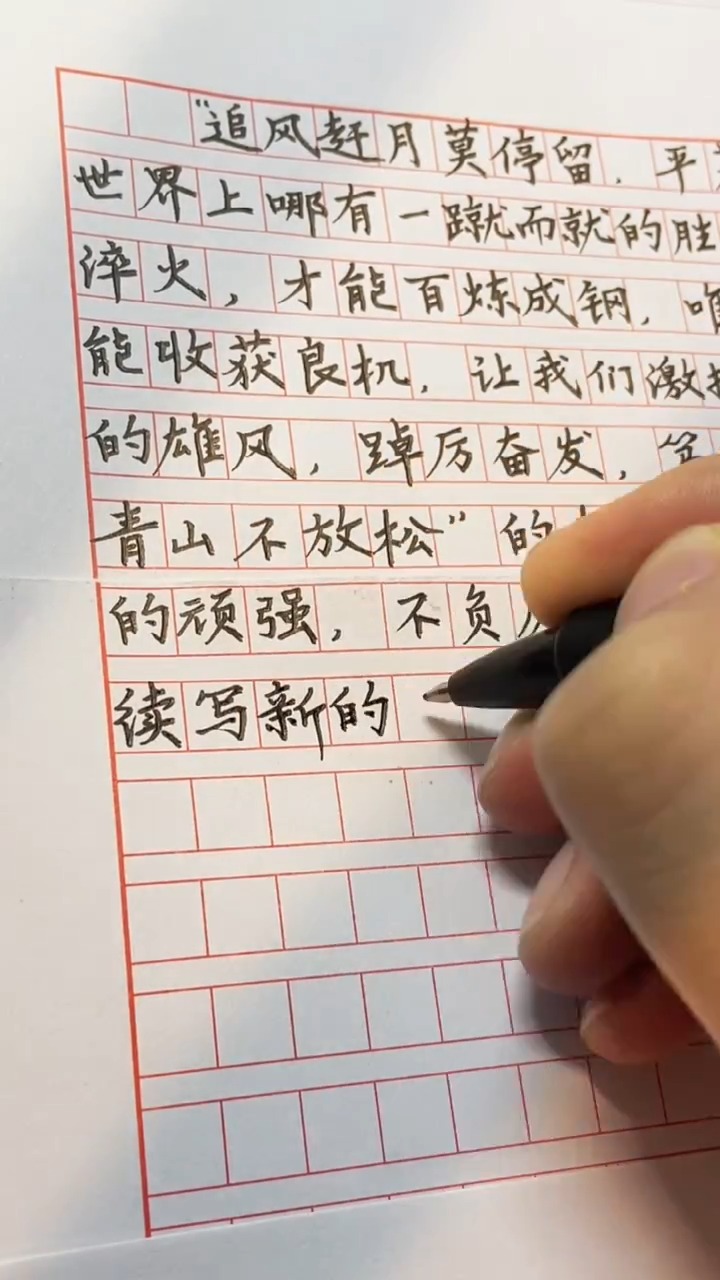 “追风赶月莫停留，平
世界上哪有一蹴而就的胜
淬火，才能百炼成钢，唯
能收获良机，让我们激扬
的雄风，踔厉奋发，笃
青山不放松”的
的顽强，不负
续写新的